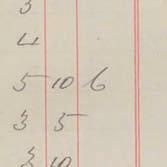 3
4
5 10 6
3 5
3 10